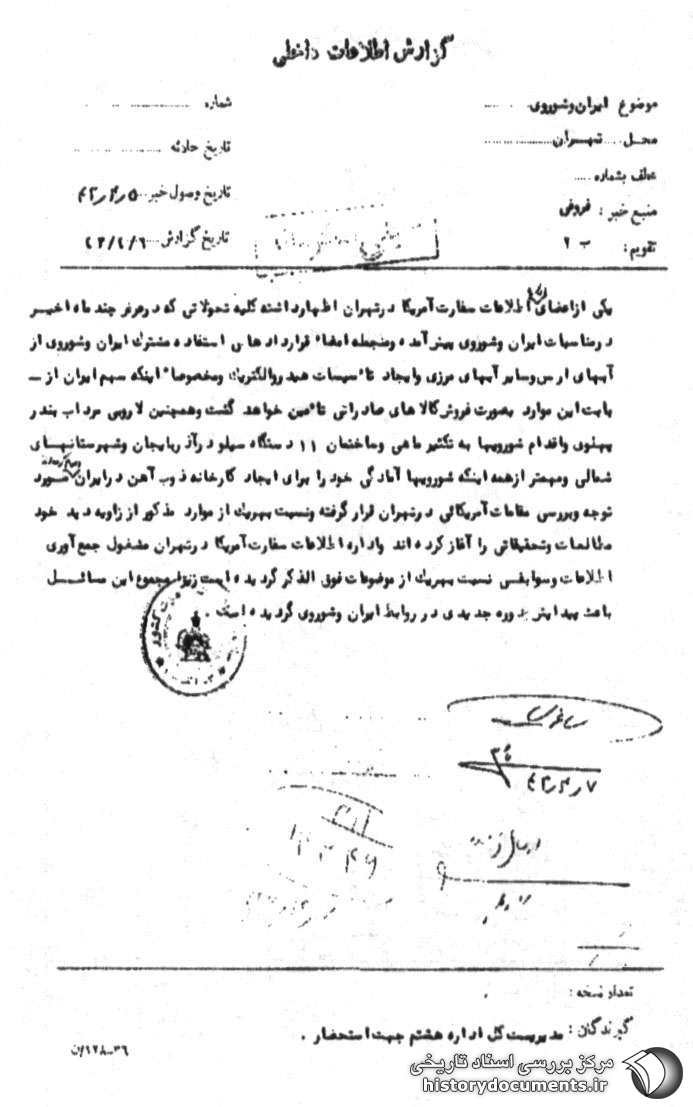 گزارش اطلاعات داخلی
موضوع ایران و شوروی
شماره
محل تهران
تاریخ حادثه
عطف بشماره
تاریخ وصول خبر ۴۲/۴/۵
منبع خبر : فروغی
تاریخ گزارش ۴۲/۴/۶
تقویم : ب ۲
یکی از اعضای اطلاعات سفارت آمریکا در تهران اظهار داشته کلیه تحولاتی که در عرض چند ماه اخیر
در مناسبات ایران و شوروی پیش آمده و منجمله امضاء قراردادهای استفاده مشترک ایران و شوروی از
آبهای ارس و سایر آبهای مرزی و ایجاد تاسیسات هیدروالکتریک و مخصوصا اینکه سهم ایران از ـ
بابت این موارد بصورت فروش کالاهای صادراتی تامین خواهد گشت و همچنین لاروبی مرداب بندر
پهلوی و اقدام شورویها به تکثیر ماهی و ساختمان ۱۱ دستگاه سیلو در آذربایجان و شهرستانهای
شمالی و مهمتر از همه اینکه شورویها آمادگی خود را برای ایجاد کارخانه ذوب آهن در ایران مورد
توجه و بررسی مقامات آمریکائی در تهران قرار گرفته و نسبت بهریک از موارد مذکور از زاویه دید خود
مطالعات و تحقیقاتی را آغاز کرده اند و اداره اطلاعات سفارت آمریکا در تهران مشغول جمع آوری
اطلاعات و سوابقی نسبت بهریک از موضوعات فوق الذکر گردیده است زیرا مجموع این مسائل
باعث پیدایش دوره جدیدی در روابط ایران و شوروی گردیده است .
۴۲/۴/۷
تعداد نسخه :
گیرندگان : مدیریت کل اداره هشتم جهت استحضار .
مرکز بررسی اسناد تاریخی
historydocuments.ir